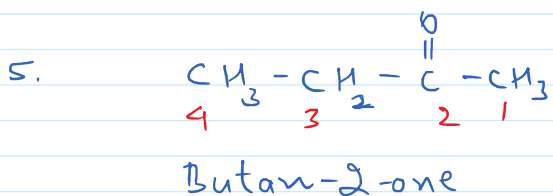 O
||
5. CH3 - CH2 - C - CH3
4 3 2 1
Butan-2-one